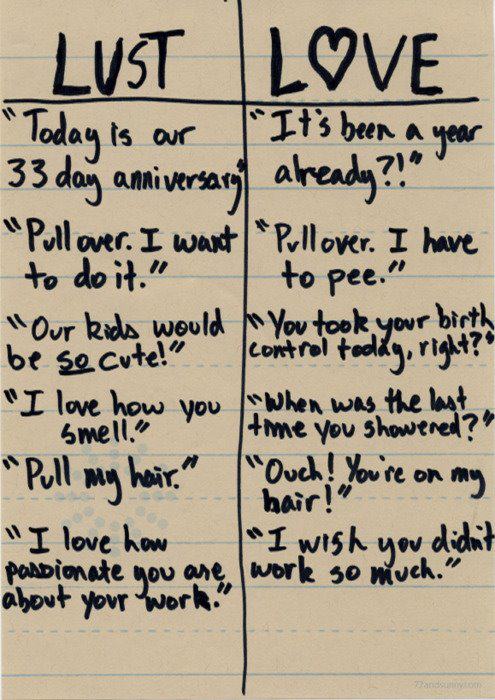 LUST
"Today is our
33 day anniversary"
"Pull over. I want
to do it."
"Our kids would
be so cute!"
"I love how you
smell."
"Pull my hair."
"I love how
passionate you are
about your work."
LOVE
"It's been a year
already?!"
"Pull over. I have
to pee."
"You took your birth
control today, right?"
"When was the last
time you showered?"
"Ouch! You're on my
hair!"
"I wish you didn't
work so much."
22andsunny.com